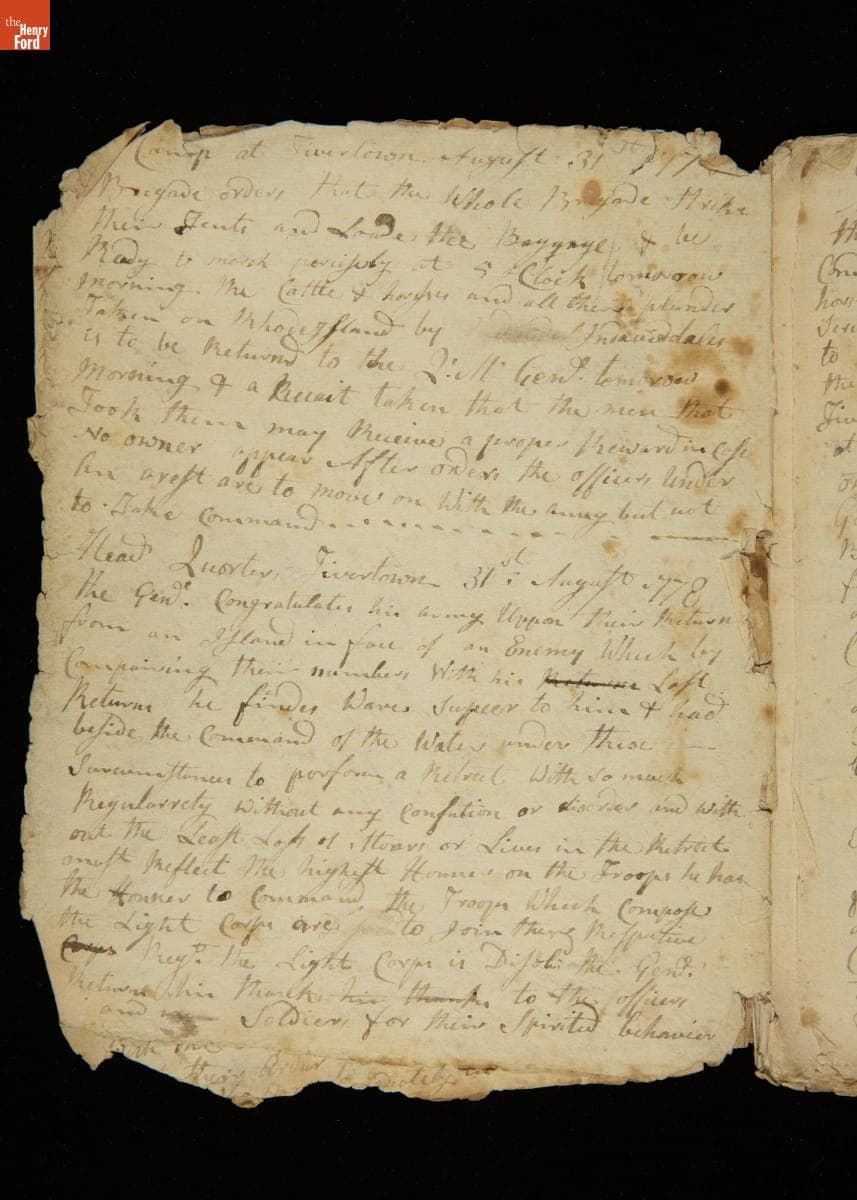 the
Henry
Ford
Camp at Tivertown August 31st 177
Brigade orders that the Whole Brigade Strike
their Tents and Loade the Baggage & be
Ready to march percisely at 5 oClock tomorrow
morning the Cattle & horses and all their plunder
Taken on Rhodeisland by Indavidales
is to be Returnd to the Q: M: Gend. tomorow
Morning & a Receit taken that the men that
Took them may Receive a proper Reward in Case
No owner appear After orders the officers Under
An arest are to move on With the army but not
to Take Command
Head Quorters Tivertown 31st August 1778
the Gend. Congratulates his army Uppon their Return
from an Island in face of an Enemy Which by
Compairing their numbers With his Returns Last
Returns he findes Ware Supeer to him & had
beside the Command of the Water under these
Surcumstances to porform a Retreet With so much
Regularrety without any Confution or disorder and with
out the Least Loss of Stoars or Lives in the Retreat
must Reflect the highest Honner on the Troops he has
the Honner to Command the Troops Which Compose
the Light Corps are to Join there Respective
Corps Regt. the Light Corps is Disolv. the Gend.
Returns his thanks his thanks to the officers
and Soldiers for their Spirited behavier